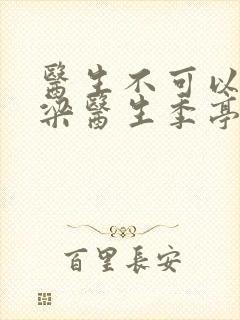 醫生不可以
梁醫生季亭
百里長安